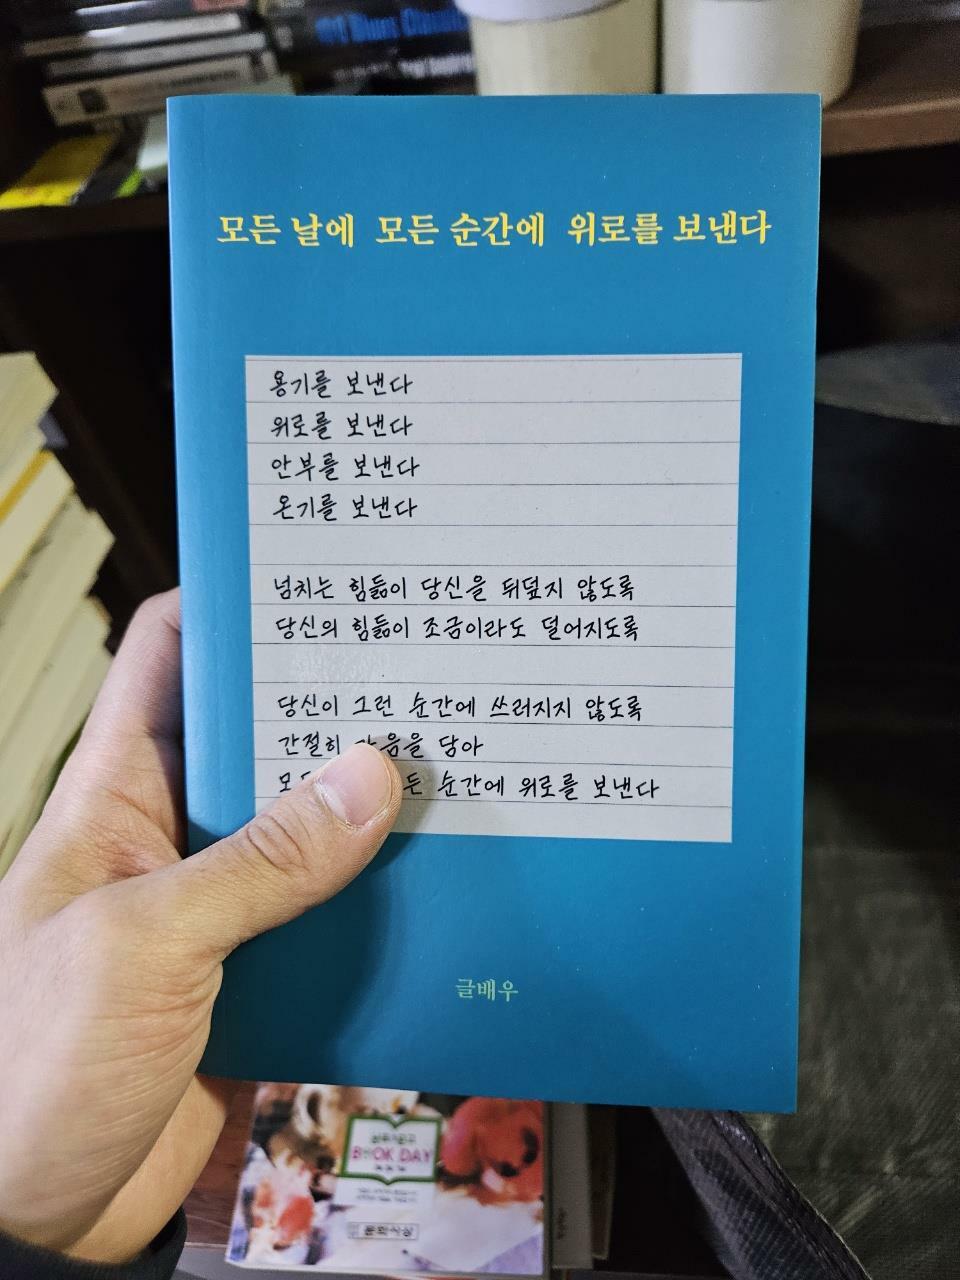 모든 날에 모든 순간에 위로를 보낸다
용기를 보낸다
위로를 보낸다
안부를 보낸다
온기를 보낸다
넘치는 힘듦이 당신을 뒤덮지 않도록
당신의 힘듦이 조금이라도 덜어지도록
당신이 그런 순간에 쓰러지지 않도록
간절히 마음을 담아
순간에 위로를 보낸다
글배우
BOOK DAY
문학사상